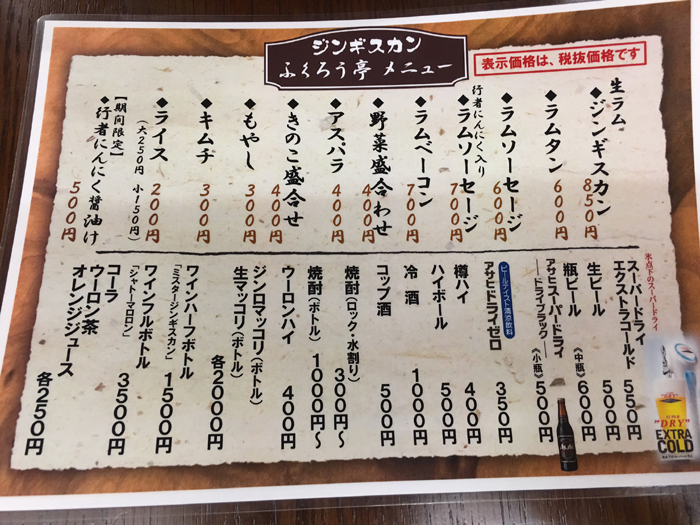 ジンギスカン
ふくろう亭 メニュー
表示価格は、税抜価格です
生ラム
◆ジンギスカン 850円
◆ラムタン 600円
◆ラムソーセージ 600円
行者にんにく入り
◆ラムソーセージ 700円
◆ラムベーコン 700円
◆野菜盛合わせ 400円
◆アスパラ 400円
◆きのこ盛合せ 400円
◆もやし 300円
◆キムチ 300円
◆ライス 200円
(大250円 小150円)
【期間限定】
◆行者にんにく醤油け 500円
氷点下のスーパードライ
スーパードライ
エクストラコールド 550円
生ビール 500円
瓶ビール 《中瓶》 600円
アサヒスーパードライ
―ドライブラック― 《小瓶》 500円
ビールテイスト清涼飲料
アサヒドライゼロ 350円
樽ハイ 400円
ハイボール 500円
冷酒 1000円
コップ酒 500円
焼酎(ロック・水割り) 300円〜
焼酎(ボトル) 1000円〜
ウーロンハイ 400円
ジンロマッコリ(ボトル)
生マッコリ(ボトル) 各2000円
ワインハーフボトル
「ミスタージンギスカン」 1500円
ワインフルボトル
「シャトーマロロン」 3500円
コーラ
ウーロン茶
オレンジジュース 各250円
"DRY"
EXTRA
COLD